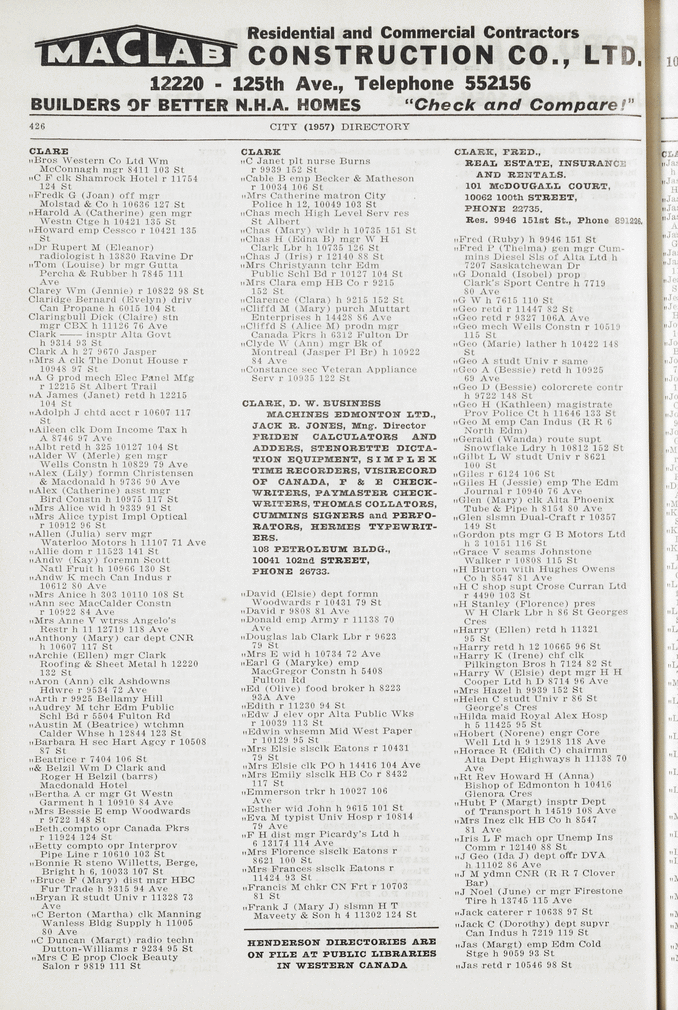 MACLAB
Residential and Commercial Contractors
CONSTRUCTION CO., LTD.
12220 - 125th Ave., Telephone 552156
BUILDERS OF BETTER N.H.A. HOMES "Check and Compare!"
426 CITY (1957) DIRECTORY
CLARE
„Bros Western Co Ltd Wm
McConnagh mgr 8411 103 St
„C F clk Shamrock Hotel r 11754
124 St
„Fredk G (Joan) off mgr
Molstad & Co h 10636 127 St
„Harold A (Catherine) gen mgr
Westn Ctge h 10421 135 St
„Howard emp Cessco r 10421 135
St
„Dr Rupert M (Eleanor)
radiologist h 13830 Ravine Dr
„Tom (Louise) br mgr Gutta
Percha & Rubber h 7845 111
Ave
Clarey Wm (Jennie) r 10822 98 St
Claridge Bernard (Evelyn) driv
Can Propane h 6015 104 St
Claringbull Dick (Claire) stn
mgr CBX h 11126 76 Ave
Clark —— insptr Alta Govt
h 9314 93 St
Clark A h 27 9670 Jasper
„Mrs A clk The Donut House r
10948 97 St
„A G prod mech Elec Panel Mfg
r 12215 St Albert Trail
„A James (Janet) retd h 12215
104 St
„Adolph J chtd acct r 10607 117
St
„Aileen clk Dom Income Tax h
A 8746 97 Ave
„Albt retd h 325 10127 104 St
„Alder W (Merle) gen mgr
Wells Constn h 10829 79 Ave
„Alex (Lily) formn Christensen
& Macdonald h 9736 90 Ave
„Alex (Catherine) asst mgr
Bird Constn h 10975 117 St
„Mrs Alice wid h 9339 91 St
„Mrs Alice typist Impl Optical
r 10912 96 St
„Allen (Julia) serv mgr
Waterloo Motors h 11107 71 Ave
„Allie dom r 11523 141 St
„Andw (Kay) foremn Scott
Natl Fruit h 10966 130 St
„Andw K mech Can Indus r
10612 80 Ave
„Mrs Anice h 303 10110 108 St
„Ann sec MacCalder Constn
r 10922 84 Ave
„Mrs Anne V wtrss Angelo's
Restr h 11 12719 118 Ave
„Anthony (Mary) car dept CNR
h 10607 117 St
„Archie (Ellen) mgr Clark
Roofing & Sheet Metal h 12220
132 St
„Aron (Ann) clk Ashdowns
Hdwre r 9534 72 Ave
„Arth r 9925 Bellamy Hill
„Audrey M tchr Edm Public
Schl Bd r 5504 Fulton Rd
„Austin M (Beatrice) wtchmn
Calder Whse h 12844 123 St
„Barbara H sec Hart Agcy r 10508
87 St
„Beatrice r 7404 106 St
„& Belzil Wm D Clark and
Roger H Belzil (barrs)
Macdonald Hotel
„Bertha A cr mgr Gt Westn
Garment h 1 10910 84 Ave
„Mrs Bessie E emp Woodwards
r 9722 148 St
„Beth compto opr Canada Pkrs
r 11924 124 St
„Betty compto opr Interprov
Pipe Line r 10610 103 St
„Bonnie R steno Willetts, Berge,
Bright h 6, 10033 107 St
„Bruce F (Mary) dist mgr HBC
Fur Trade h 9315 94 Ave
„Bryan R studt Univ r 11328 73
Ave
„C Berton (Martha) clk Manning
Wanless Bldg Supply h 11005
80 Ave
„C Duncan (Margt) radio techn
Dutton-Williams r 9234 95 St
„Mrs C E prop Clock Beauty
Salon r 9819 111 St
CLARK
„C Janet plt nurse Burns
r 9939 152 St
„Cable B emp Becker & Matheson
r 10034 106 St
„Mrs Catherine matron City
Police h 12, 10049 103 St
„Chas mech High Level Serv res
St Albert
„Chas (Mary) wldr h 10735 151 St
„Chas H (Edna B) mgr W H
Clark Lbr h 10735 126 St
„Chas J (Iris) r 12140 88 St
„Mrs Christyann tchr Edm
Public Schl Bd r 10127 104 St
„Mrs Clara emp HB Co r 9215
152 St
„Clarence (Clara) h 9215 152 St
„Cliffd M (Mary) purch Muttart
Enterprises h 14428 86 Ave
„Cliffd S (Alice M) prodn mgr
Canada Pkrs h 6312 Fulton Dr
„Clyde W (Ann) mgr Bk of
Montreal (Jasper Pl Br) h 10922
84 Ave
„Constance sec Veteran Appliance
Serv r 10935 122 St
CLARK, D. W. BUSINESS
MACHINES EDMONTON LTD.,
JACK R. JONES, Mng. Director
FRIDEN CALCULATORS AND
ADDERS, STENORETTE DICTA-
TION EQUIPMENT, SIMPLEX
TIME RECORDERS, VISIRECORD
OF CANADA, F & E CHECK-
WRITERS, PAYMASTER CHECK-
WRITERS, THOMAS COLLATORS,
CUMMINS SIGNERS and PERFO-
RATORS, HERMES TYPEWRIT-
ERS.
108 PETROLEUM BLDG.,
10041 102nd STREET,
PHONE 26733.
„David (Elsie) dept formn
Woodwards r 10431 79 St
„David r 9808 81 Ave
„Donald emp Army r 11138 70
Ave
„Douglas lab Clark Lbr r 9623
79 St
„Mrs E wid h 10734 72 Ave
„Earl G (Maryke) emp
MacGregor Constn h 5408
Fulton Rd
„Ed (Olive) food broker h 8223
93A Ave
„Edith r 11230 94 St
„Edw J elev opr Alta Public Wks
r 10039 113 St
„Edwin whsemn Mid West Paper
r 10129 95 St
„Mrs Elsie slsclk Eatons r 10431
79 St
„Mrs Elsie clk PO h 14416 104 Ave
„Mrs Emily slsclk HB Co r 8432
117 St
„Emmerson trkr h 10027 106
Ave
„Esther wid John h 9615 101 St
„Eva M typist Univ Hosp r 10814
79 Ave
„F H dist mgr Picardy's Ltd h
6 13174 114 Ave
„Mrs Florence slsclk Eatons r
8621 100 St
„Mrs Frances slsclk Eatons r
11424 93 St
„Francis M chkr CN Frt r 10703
81 St
„Frank J (Mary J) slsmn H T
Maveety & Son h 4 11302 124 St
HENDERSON DIRECTORIES ARE
ON FILE AT PUBLIC LIBRARIES
IN WESTERN CANADA
CLARK, FRED.,
REAL ESTATE, INSURANCE
AND RENTALS.
101 McDOUGALL COURT,
10062 100th STREET,
PHONE 22735.
Res. 9946 151st St., Phone 891226.
„Fred (Ruby) h 9946 151 St
„Fred P (Thelma) gen mgr Cum-
mins Diesel Sls of Alta Ltd h
7207 Saskatchewan Dr
„G Donald (Isobel) prop
Clark's Sport Centre h 7719
80 Ave
„G W h 7615 110 St
„Geo retd r 11447 82 St
„Geo retd r 9327 106A Ave
„Geo mech Wells Constn r 10519
115 St
„Geo (Marie) lather h 10422 148
St
„Geo A studt Univ r same
„Geo A (Bessie) retd h 10925
69 Ave
„Geo D (Bessie) colorcrete contr
h 9722 148 St
„Geo H (Kathleen) magistrate
Prov Police Ct h 11646 133 St
„Geo M emp Can Indus (R R 6
North Edm)
„Gerald (Wanda) route supt
Snowflake Ldry h 10812 152 St
„Gilbt L W studt Univ r 8621
100 St
„Giles r 6124 106 St
„Giles H (Jessie) emp The Edm
Journal r 10940 76 Ave
„Glen (Mary) clk Alta Phoenix
Tube & Pipe h 8154 80 Ave
„Glen slsmn Dual-Craft r 10357
149 St
„Gordon pts mgr G B Motors Ltd
h 3 10151 116 St
„Grace V seams Johnstone
Walker r 10808 115 St
„H Burton with Hughes Owens
Co h 8547 81 Ave
„H C shop supt Crose Curran Ltd
r 4490 103 St
„H Stanley (Florence) pres
W H Clark Lbr h 86 St Georges
Cres
„Harry (Ellen) retd h 11321
95 St
„Harry retd h 12 10665 96 St
„Harry K (Irene) chf clk
Pilkington Bros h 7124 82 St
„Harry W (Elsie) dept mgr H H
Cooper Ltd h D 8714 96 Ave
„Mrs Hazel h 9939 152 St
„Helen C studt Univ r 86 St
George's Cres
„Hilda maid Royal Alex Hosp
h 5 11425 95 St
„Hobert (Norene) engr Core
Well Ltd h 9 12918 118 Ave
„Horace R (Edith C) chairmn
Alta Dept Highways h 11138 70
Ave
„Rt Rev Howard H (Anna)
Bishop of Edmonton h 10416
Glenora Cres
„Hubt P (Margt) insptr Dept
of Transport h 14519 108 Ave
„Mrs Inez clk HB Co h 8547
81 Ave
„Iris L F mach opr Unemp Ins
Comm r 12140 88 St
„J Geo (Ida J) dept offr DVA
h 11102 86 Ave
„J M ydmn CNR (R R 7 Clover
Bar)
„J Noel (June) cr mgr Firestone
Tire h 13745 115 Ave
„Jack caterer r 10638 97 St
„Jack C (Dorothy) dept supvr
Can Indus h 7219 119 St
„Jas (Margt) emp Edm Cold
Stge h 9059 93 St
„Jas retd r 10546 98 St